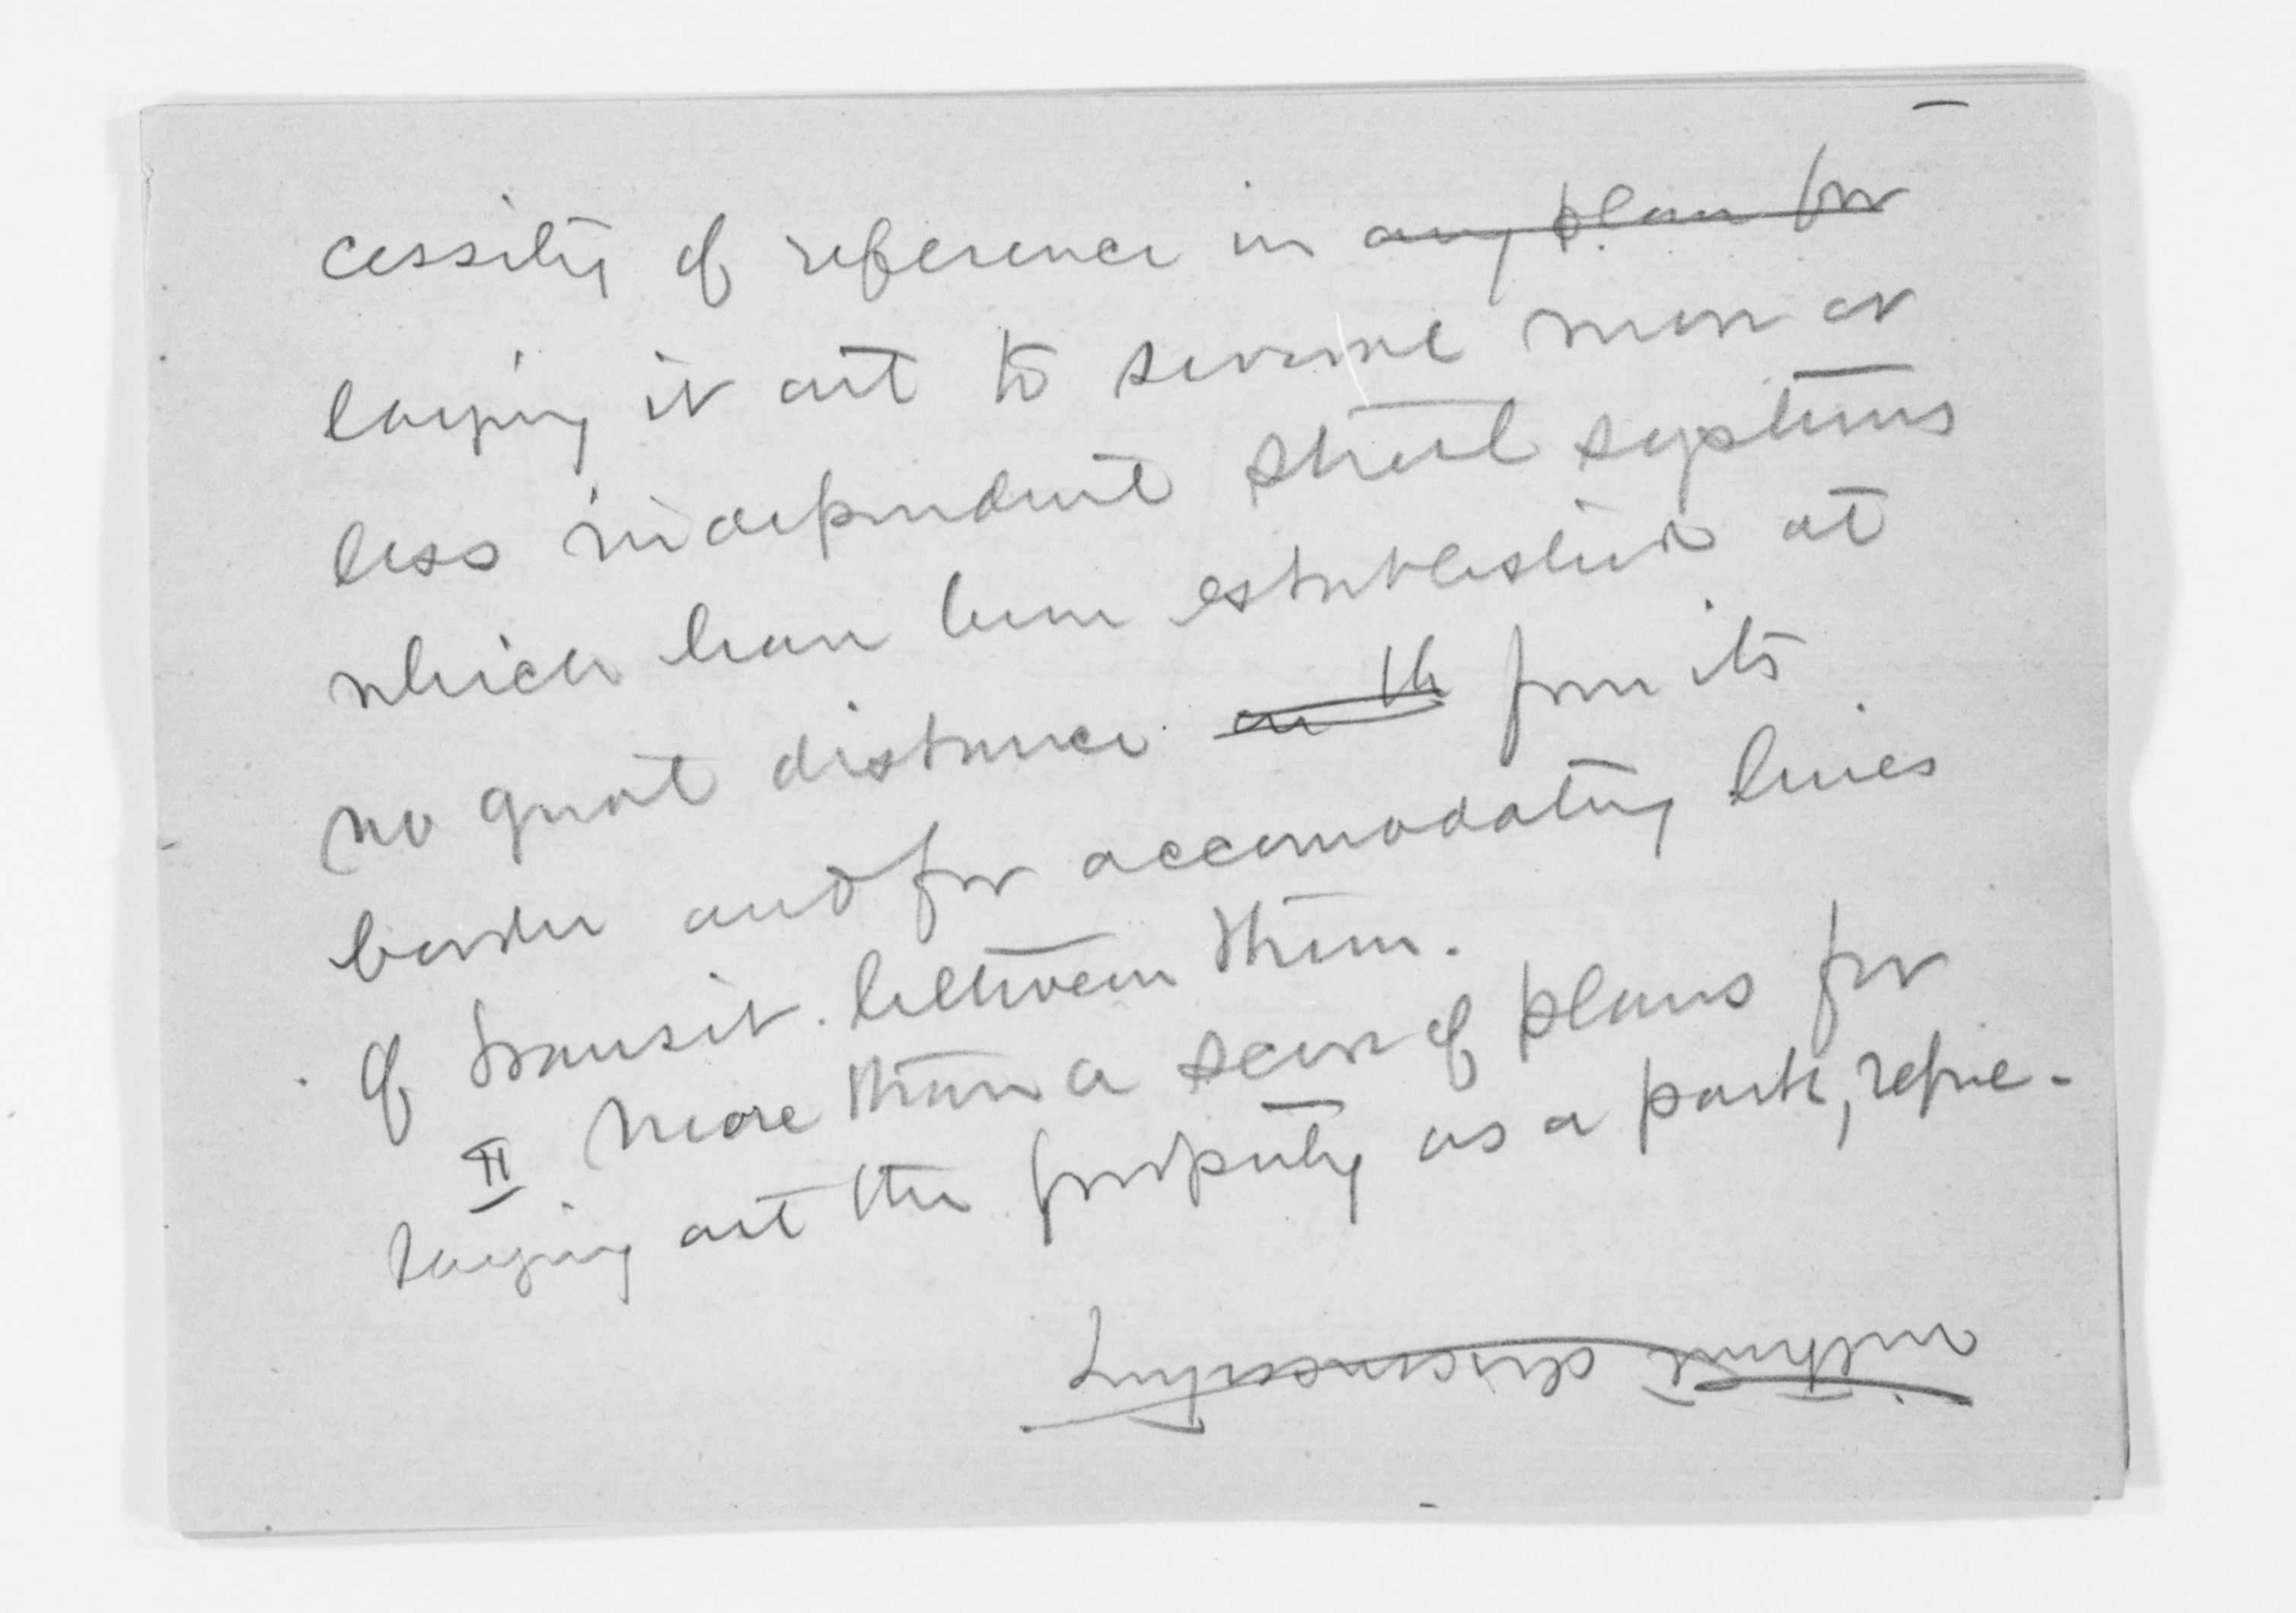 cessity of reference in any plan for
laying it out to several more or
less independent street systems
which have been established at
no great distance on th from its
border and for accomodating lines
of transit. between them.
II More than a score of plans for
laying out the property as a park, repre-
without